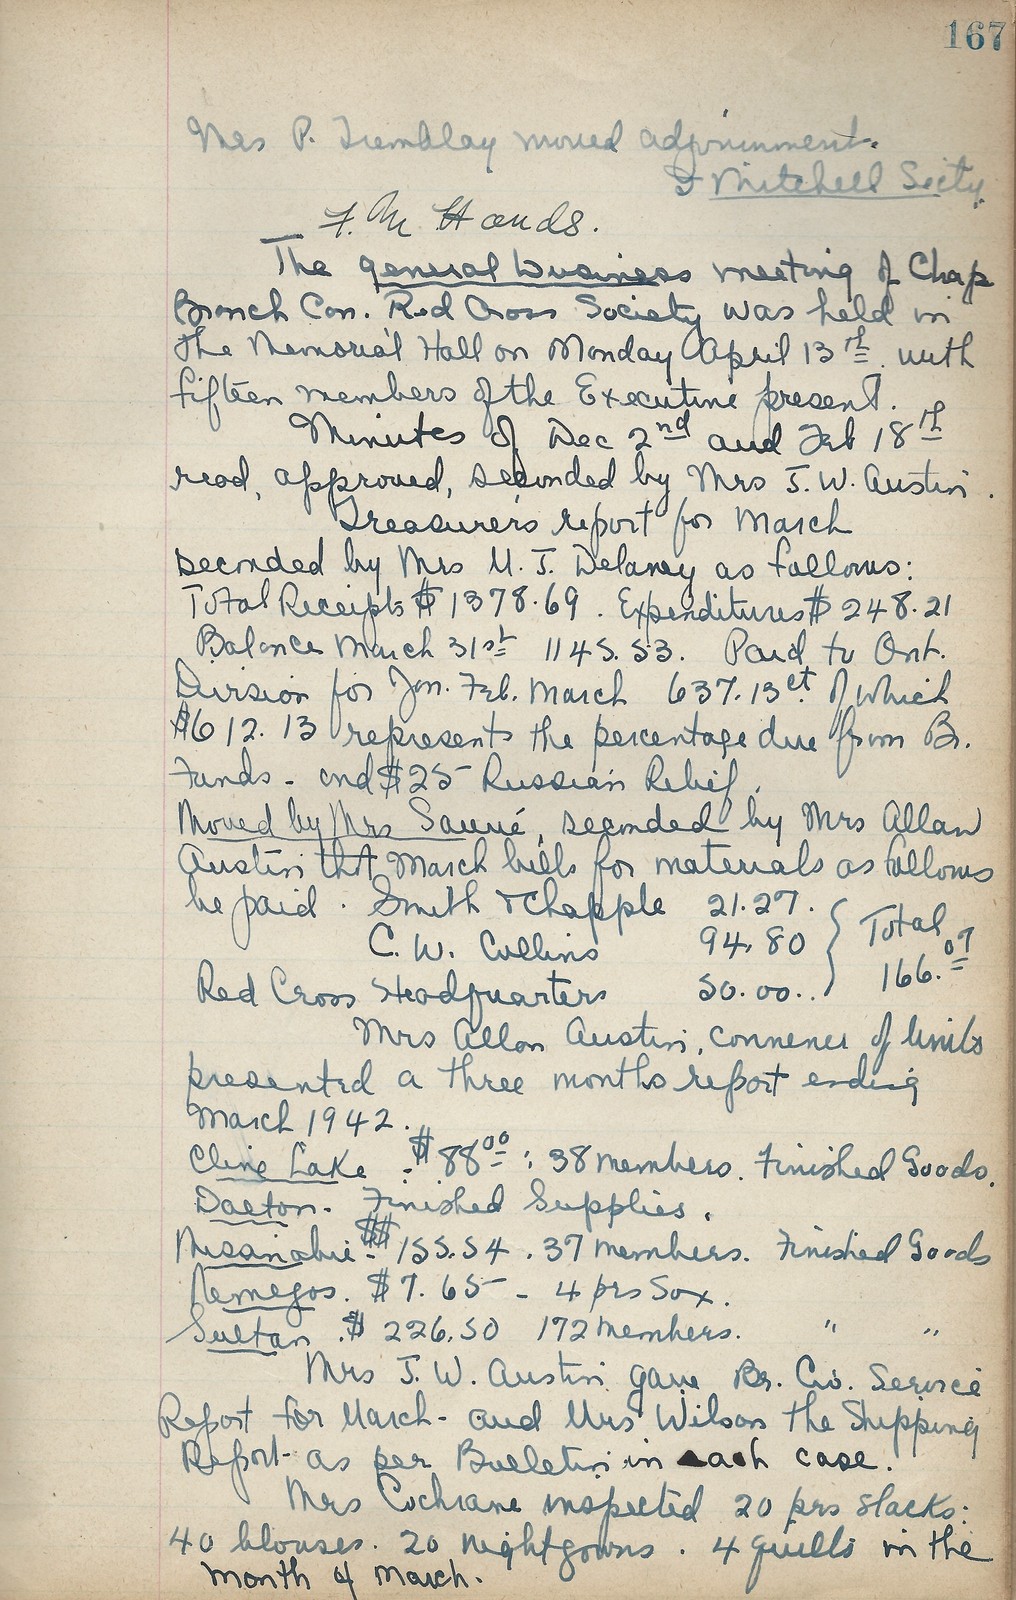 167
Mrs P. Tremblay moved adjournment.
F Mitchell Secty.
F. M Hands.
The general business meeting of Chap
Branch Can. Red Cross Society was held in
the Memorial Hall on Monday April 13th. with
fifteen members of the Executive present.
Minutes of Dec 2nd and Feb 18th
read, approved, seconded by Mrs J. W. Austin.
Treasurer's report for March
seconded by Mrs M. J. Delaney as follows:
Total Receipts $1378.69. Expenditures $ 248.21
Balance March 31st 1145.53. Paid to Ont.
Division for Jan. Feb. March 637.13ct of which
$612.13 represents the percentage due from Br.
Funds - and $25- Russian Relief.
Moved by Mrs Sauvé, seconded by Mrs Allan
Austin that March bills for materials as follows
be paid. Smith & Chapple 21.27.
C. W. Collins 94.80 } Total 166.07
Red Cross Headquarters 50.00..
Mrs Allan Austin, convener of Units
presented a three months report ending
March 1942.
Cline Lake : $88.00 : 38 members. Finished Goods.
Dalton. Finished Supplies.
Missanabie - $155.54. 37 members. Finished Goods
Nemegos. $7.65 - 4 prs Sox.
Sultan. $ 226.50 172 members. " "
Mrs J. W. Austin gave Br. Civ. Service
Report for March - and Mrs Wilson the Shipping
Report - as per Bulletin in each case.
Mrs Cochrane inspected 20 prs slacks:
40 blouses. 20 nightgowns. 4 quills in the
month of March.